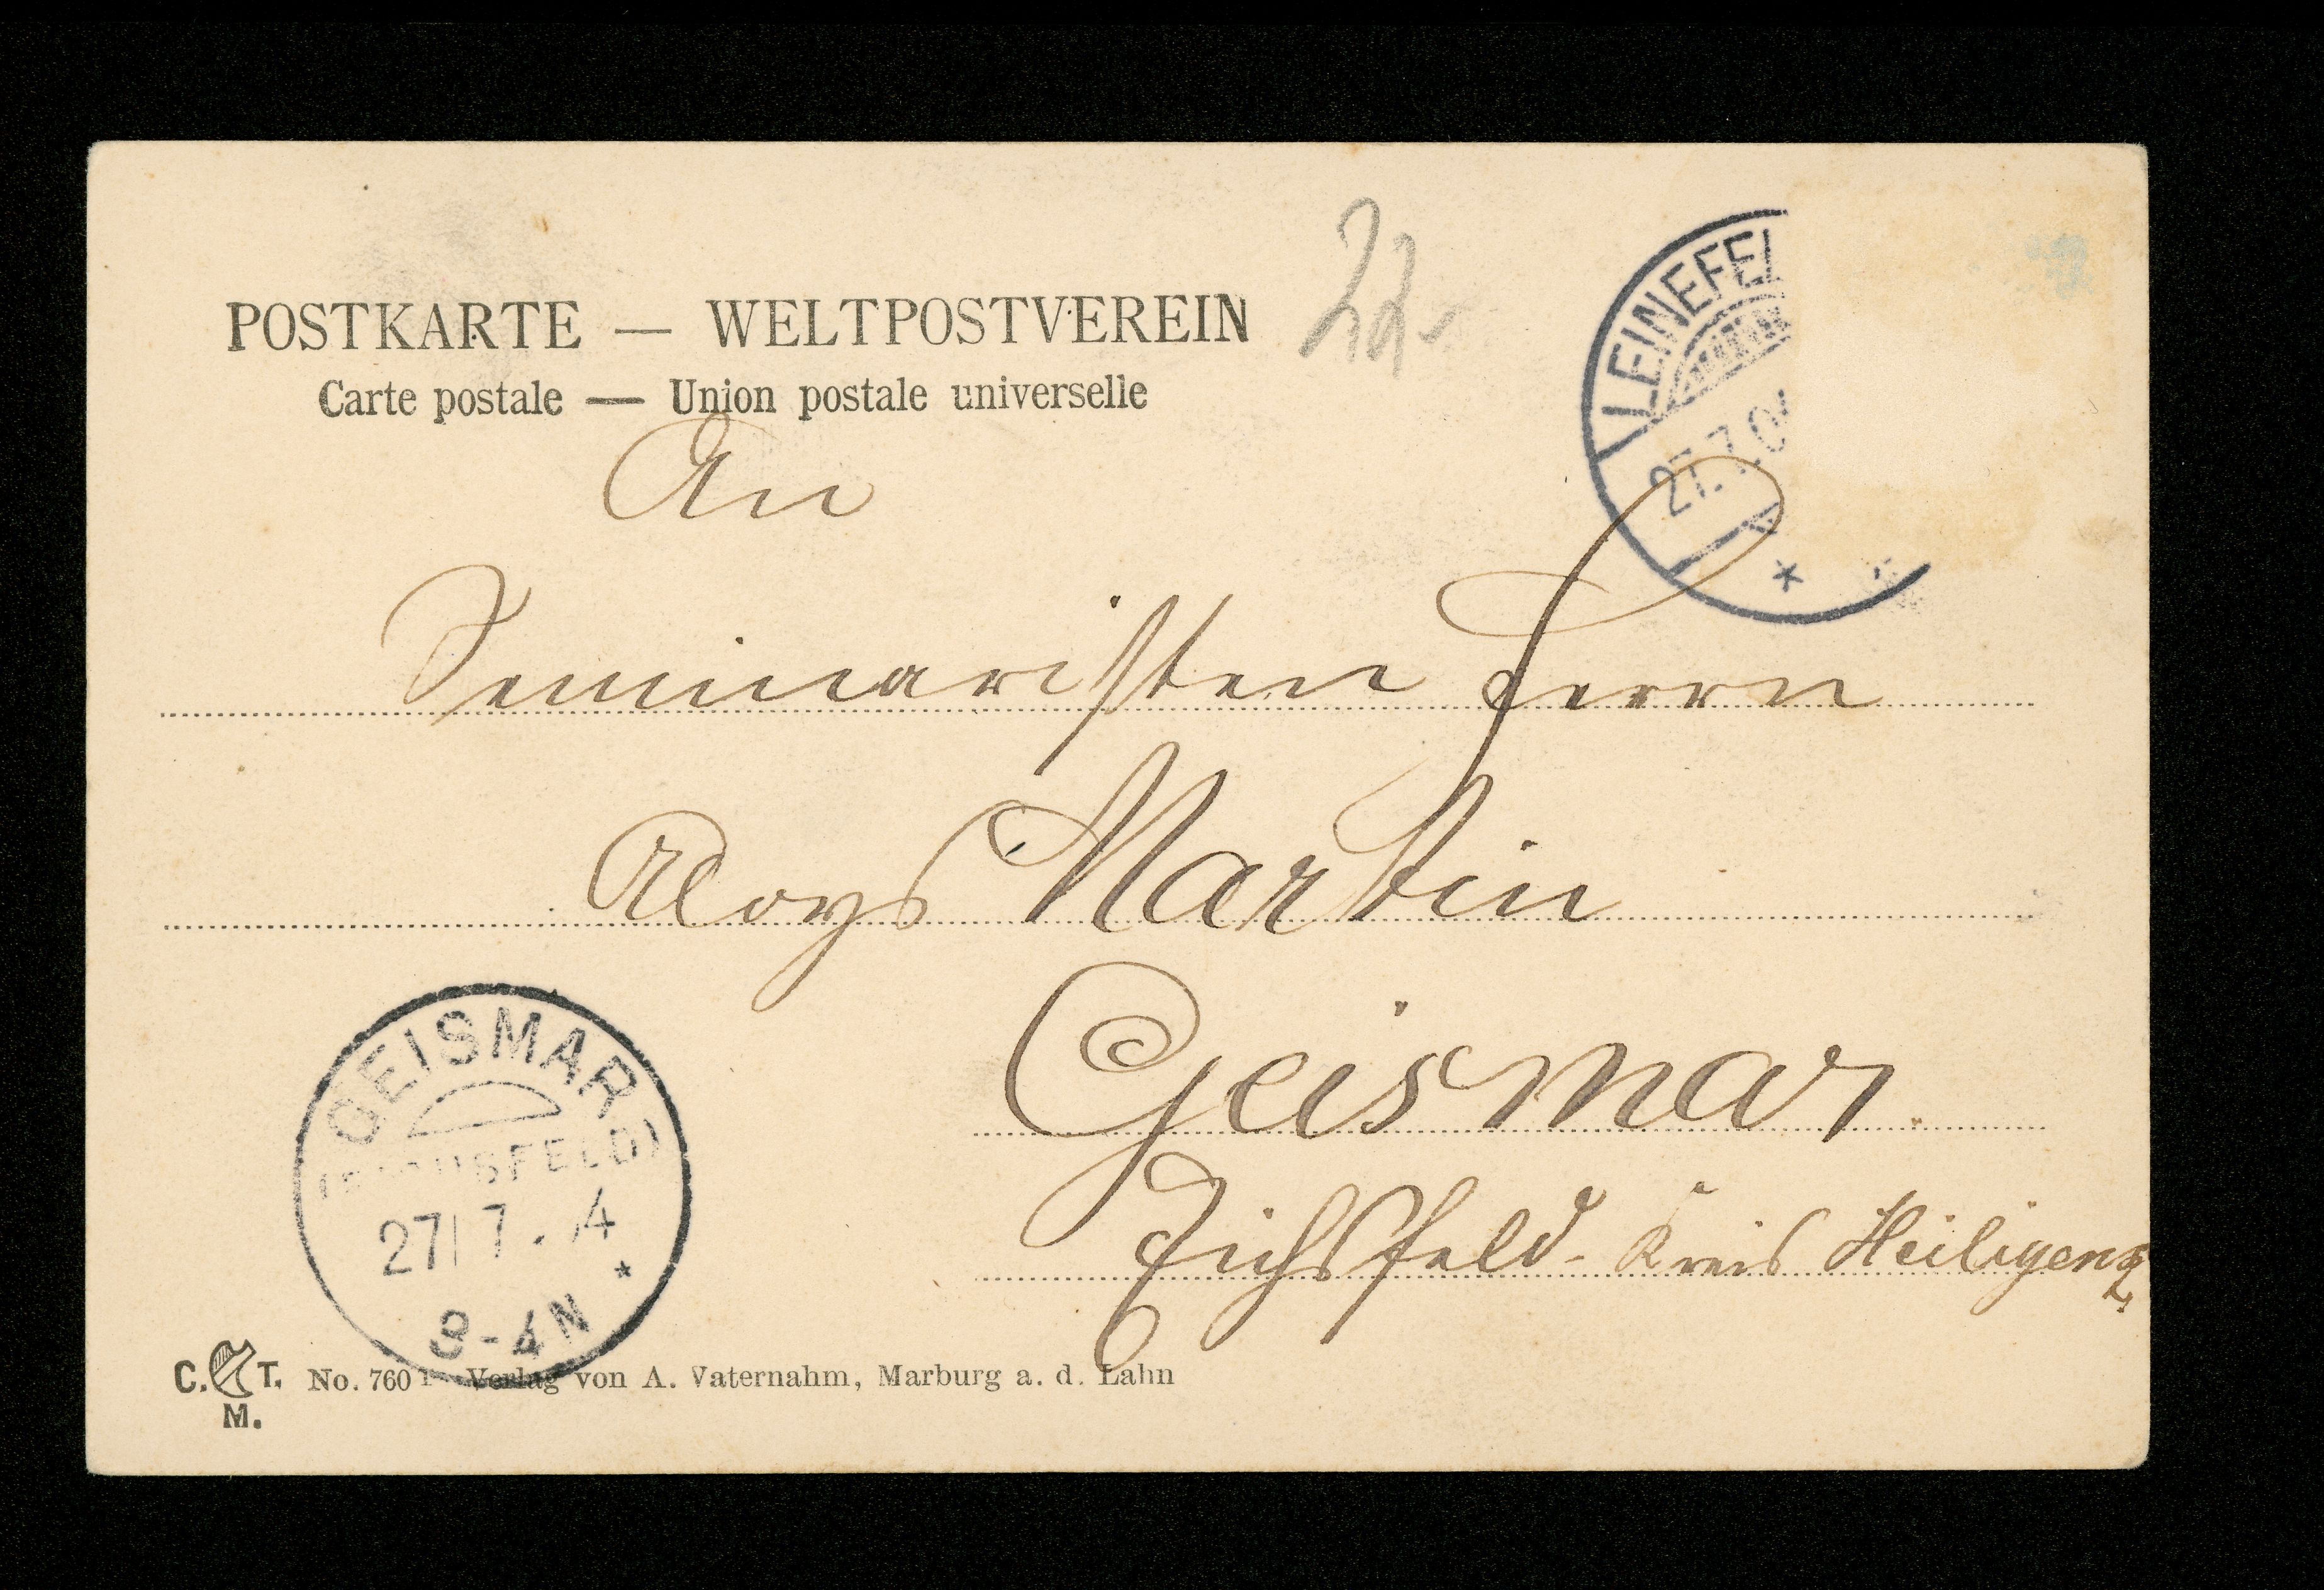 POSTKARTE — WELTPOSTVEREIN
Carte postale — Union postale universelle
22.-
LEINEFEL
27.7.04
*
An
Seminaristen Herrn
Aloys Martin
Geismar.
Eichsfeld - Kreis Heiligenst.
GEISMAR
SFELD)
27/7. 4
*
3-4N
C. T. M. No. 760 Verlag von A. Vaternahm, Marburg a. d. Lahn